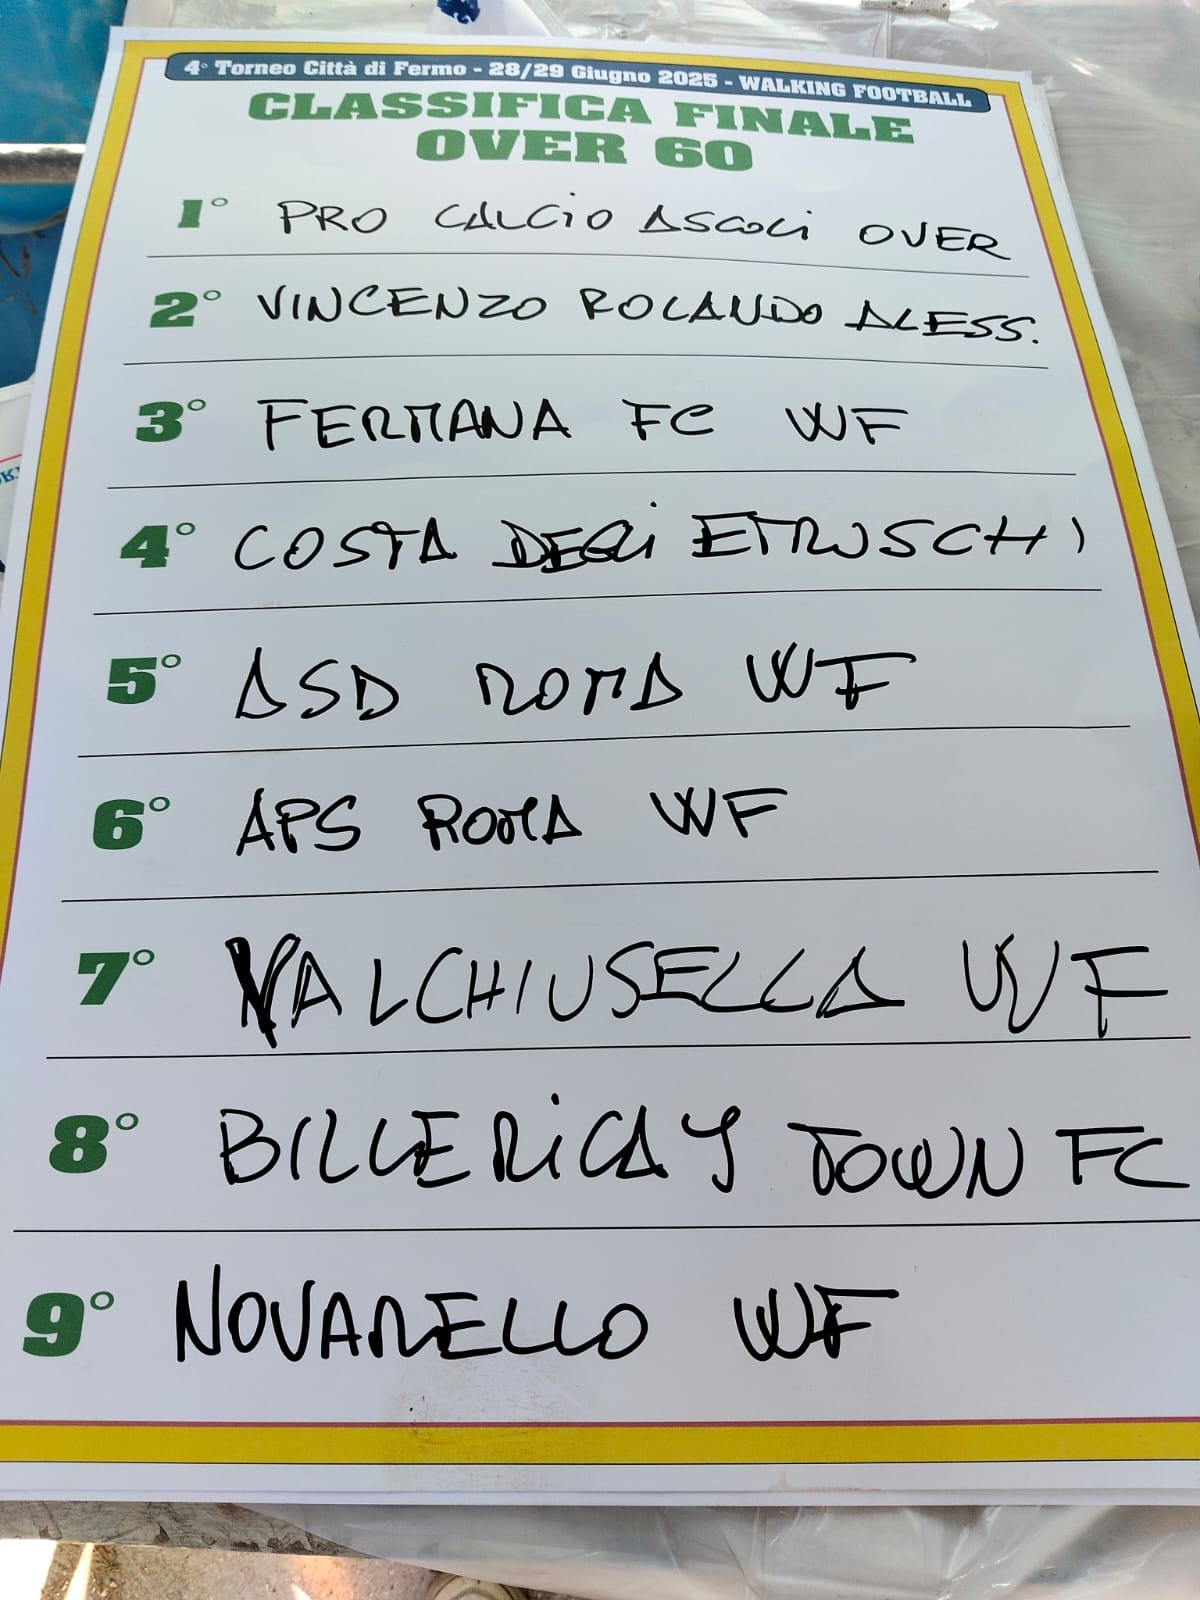 4° Torneo Città di Fermo - 28/29 Giugno 2025 - WALKING FOOTBALL
CLASSIFICA FINALE
OVER 60
1° PRO CALCIO ASCOLI OVER
2° VINCENZO ROLANDO ALESS.
3° FERMANA FC WF
4° COSTA DEGLI ETRUSCHI
5° ASD ROMA WF
6° APS ROMA WF
7° VALCHIUSELLA WF
8° BILLERICAY TOWN FC
9° NOVARELLO WF